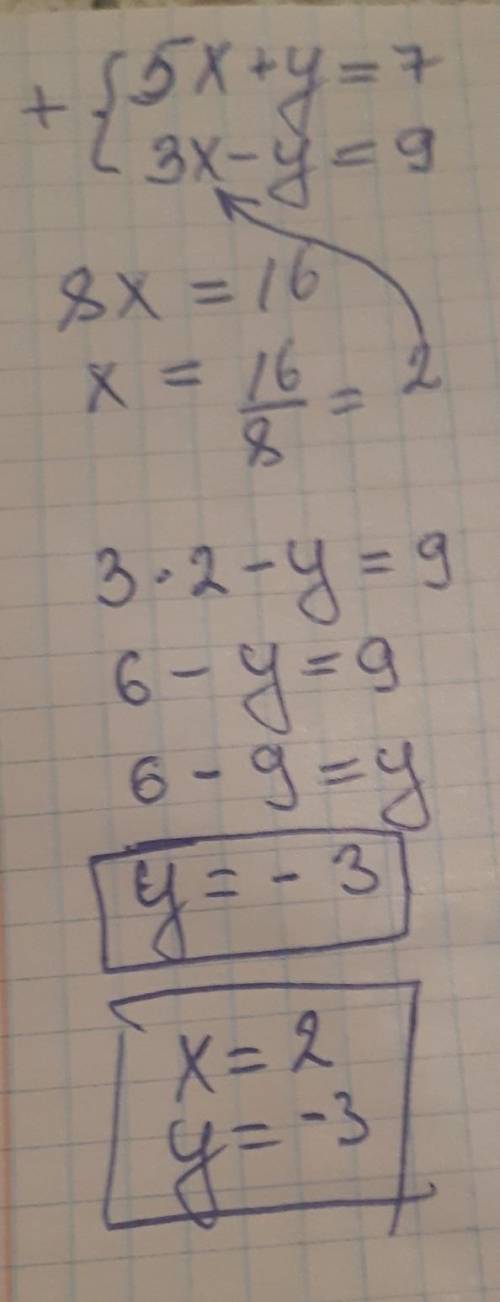 + { 5x + y = 7
3x - y = 9
8x = 16
x = 16/8 = 2
3 · 2 - y = 9
6 - y = 9
6 - 9 = y
y = - 3
x = 2
y = -3